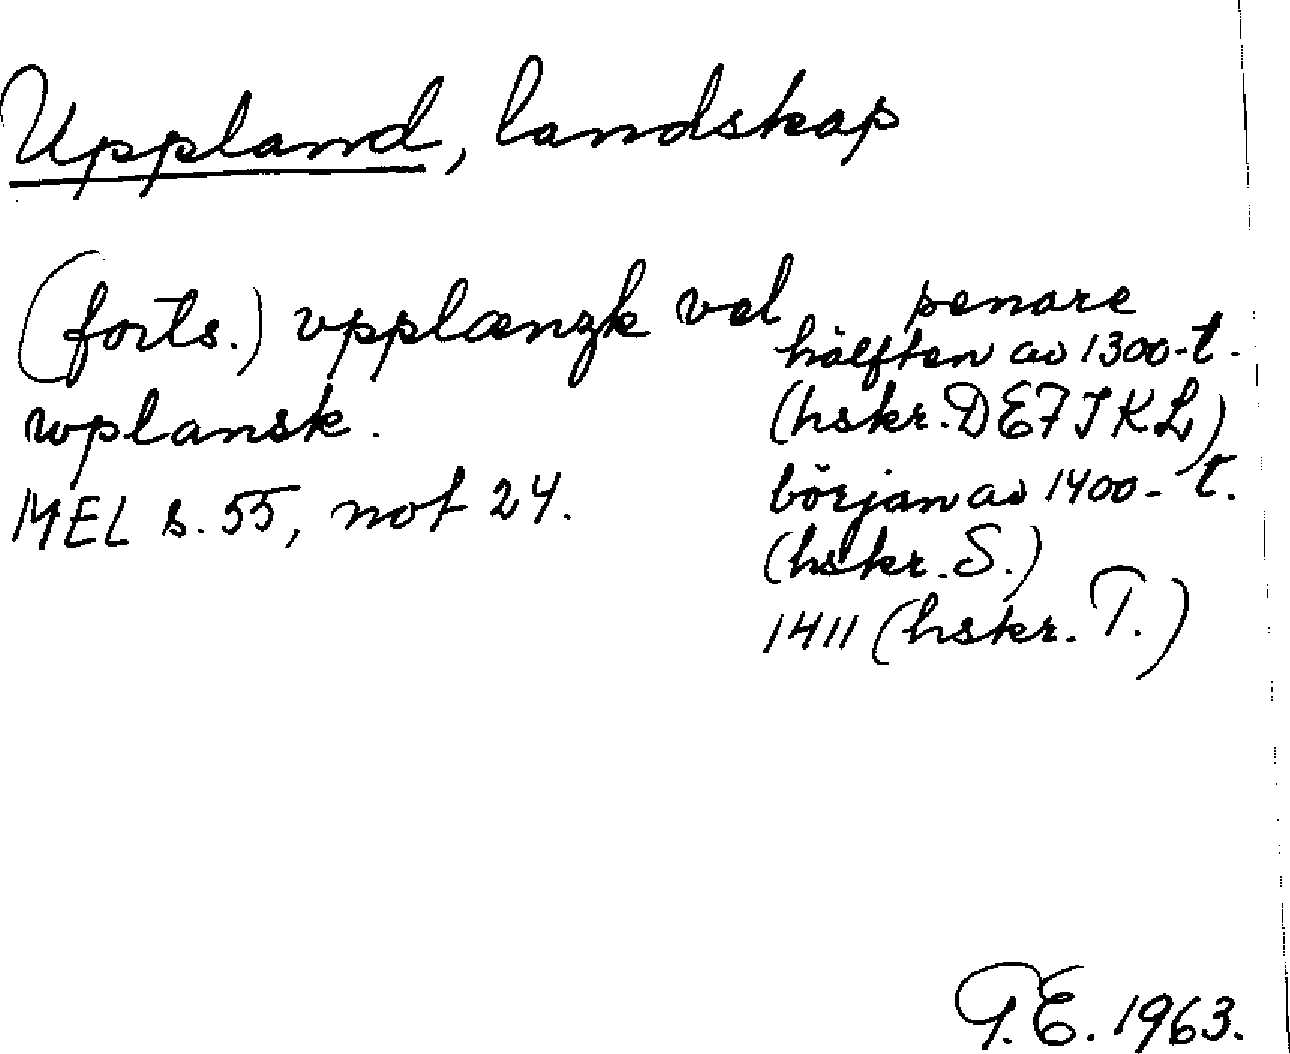 Uppland, landskap
(forts.) vpplænzk vel senare
hälften av 1300-t.
(hskr. DEFIKL)
wplansk.
början av 1400-t.
MEL s. 55, not 24.
(hskr. S.)
1411 (hskr. T.)
T.E. 1963.